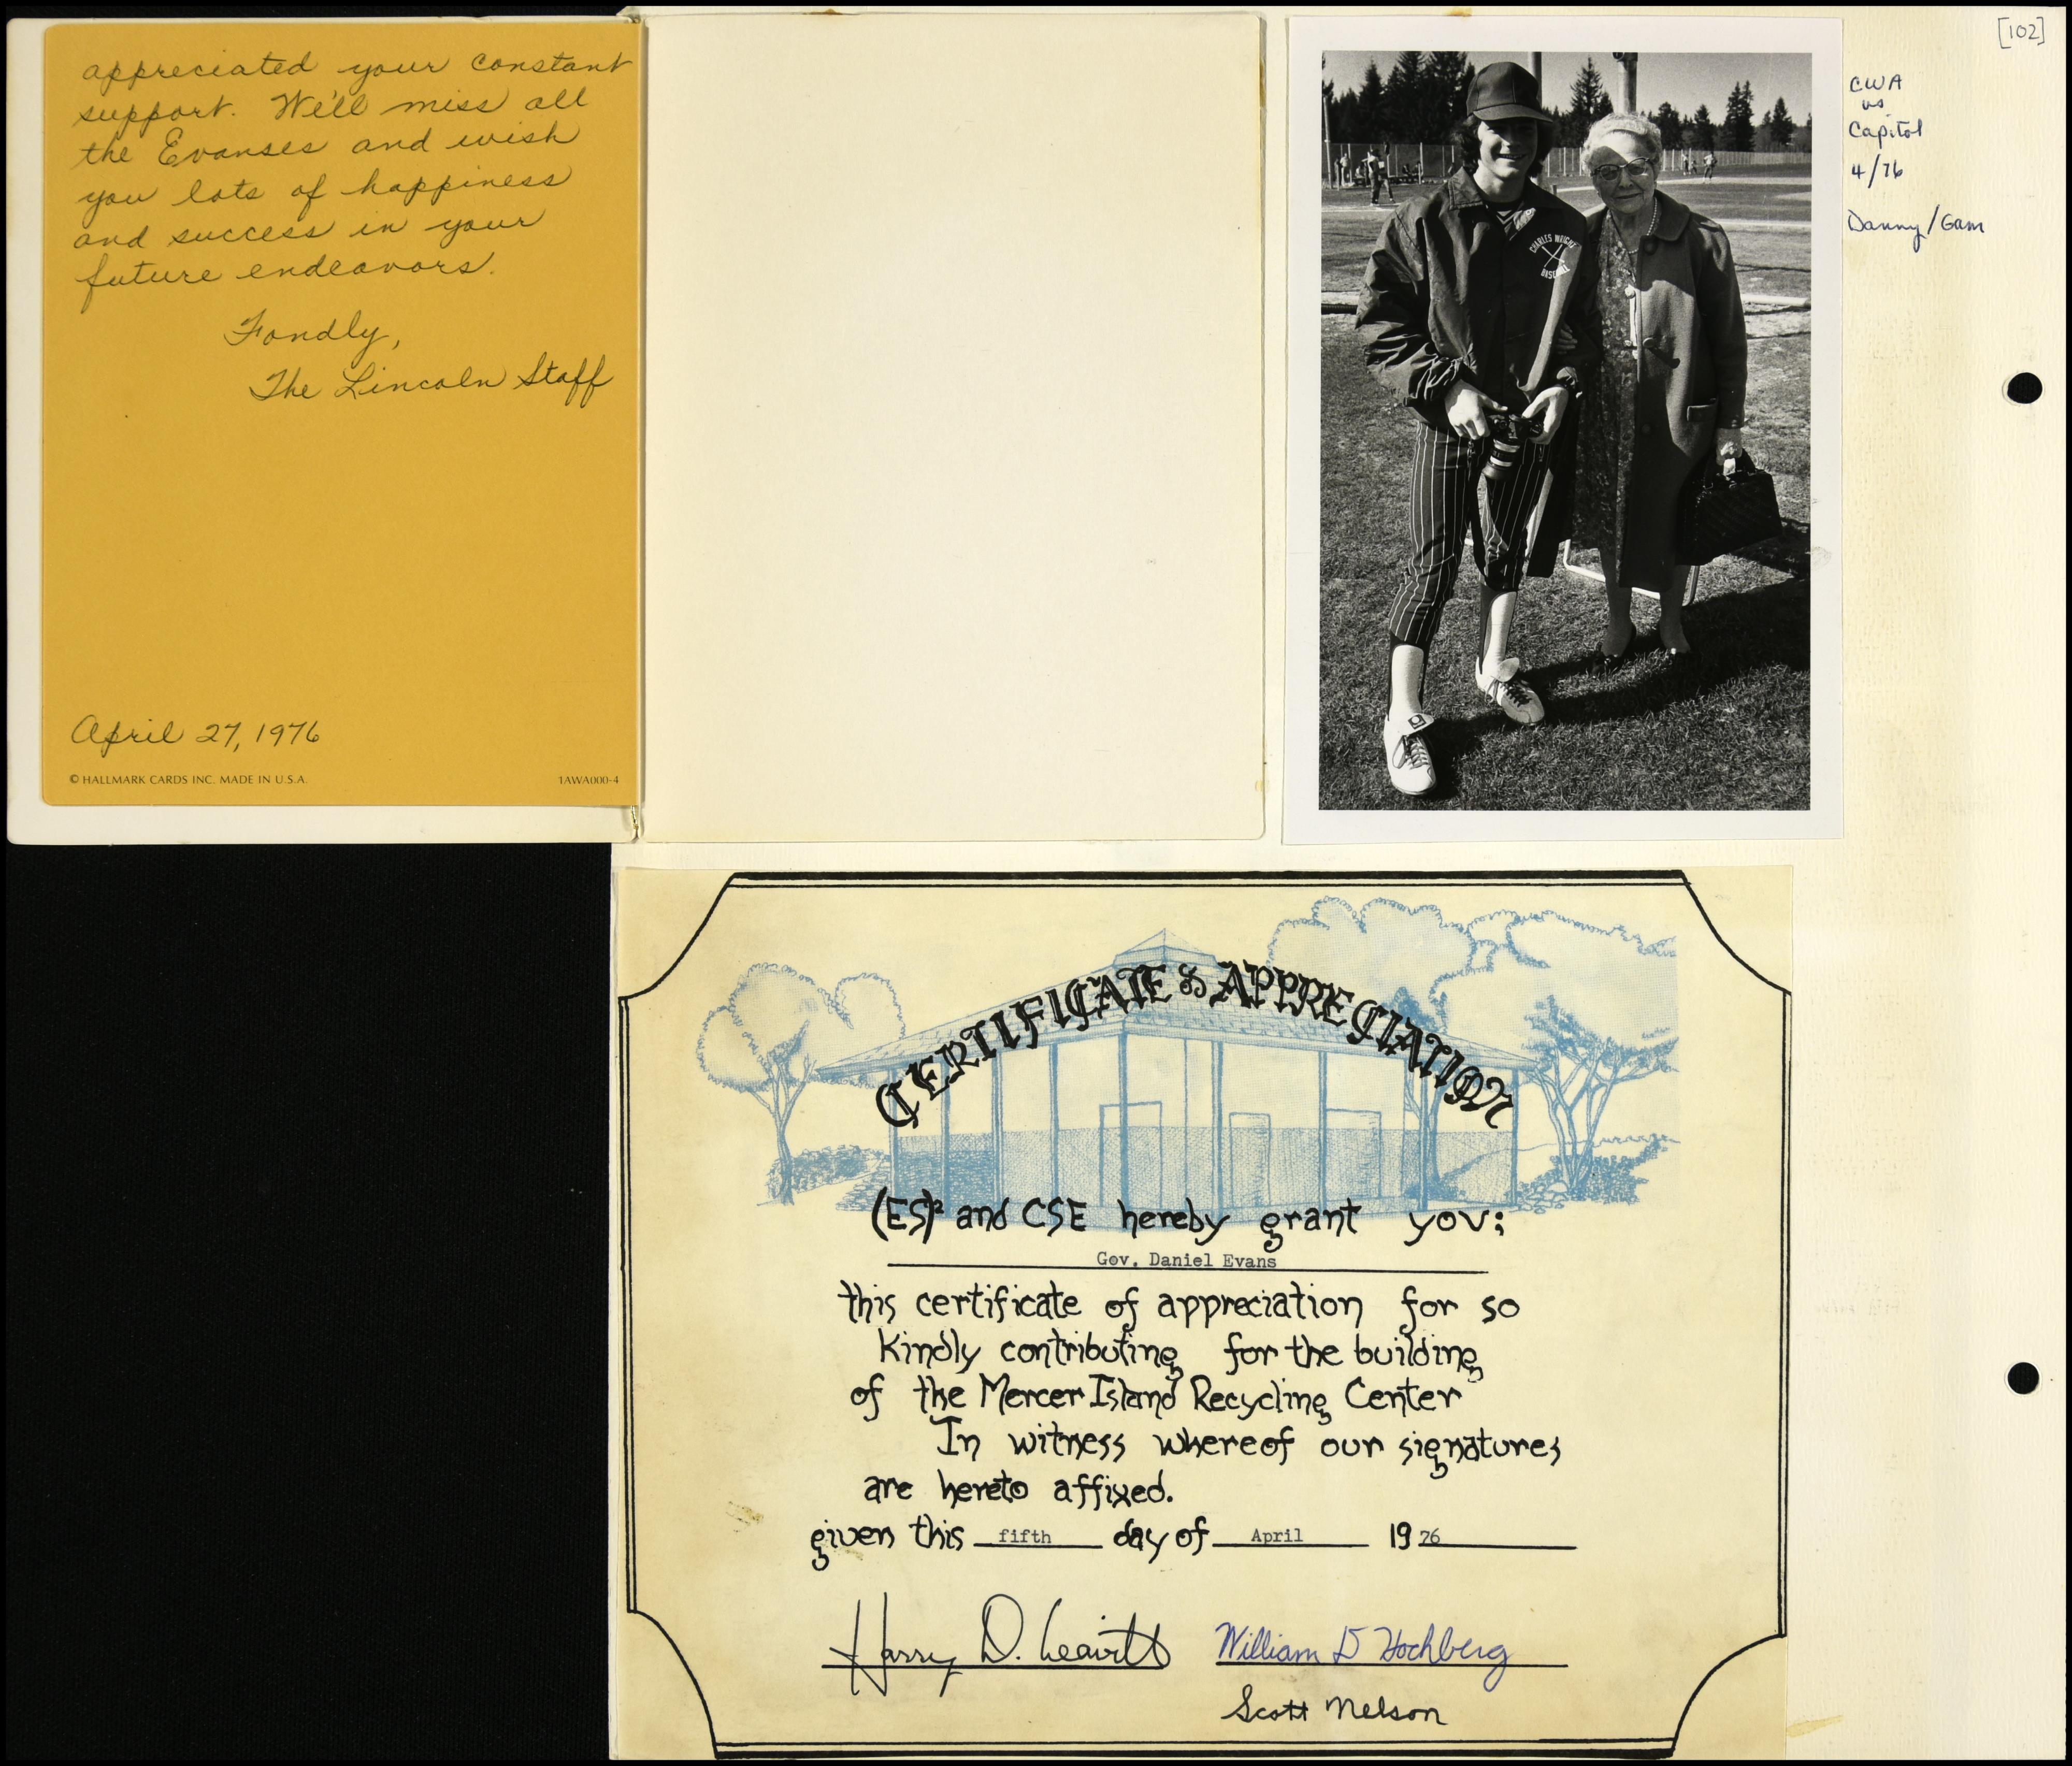 appreciated your constant
support. We'll miss all
the Evanses and wish
you lots of happiness
and success in your
future endeavors.
Fondly,
The Lincoln Staff
April 27, 1976
© HALLMARK CARDS INC. MADE IN U.S.A.
1AWA000-4
CHARLES WRIGHT
[102]
CWA
vs
Capitol
4/76
Danny/Gam
CERTIFICATE of APPRECIATION
(ES)² and CSE hereby grant you;
Gov. Daniel Evans
this certificate of appreciation for so
kindly contributing for the building
of the Mercer Island Recycling Center
In witness whereof our signatures
are hereto affixed.
given this fifth day of April 1976
Harry D. Leavitt
William D Hochberg
Scott Nelson